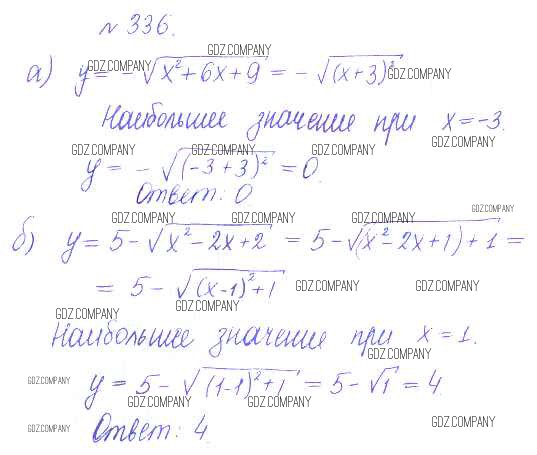 № 336.
GDZ.COMPANY
а) y = -√(x²+6x+9) = -√((x+3)²)
GDZ.COMPANY GDZ.COMPANY
Наибольшее значение при x=-3.
GDZ.COMPANY
GDZ.COMPANY GDZ.COMPANY GDZ.COMPANY
y = -√((-3+3)²) = 0.
Ответ: 0
GDZ.COMPANY GDZ.COMPANY GDZ.COMPANY GDZ.COMPANY
б) y = 5-√(x²-2x+2) = 5-√((x²-2x+1)+1) =
= 5-√((x-1)²+1)
GDZ.COMPANY GDZ.COMPANY
GDZ.COMPANY GDZ.COMPANY
Наибольшее значение при x=1.
GDZ.COMPANY
GDZ.COMPANY
y = 5-√((1-1)²+1) = 5-√1 = 4
GDZ.COMPANY GDZ.COMPANY
Ответ: 4
GDZ.COMPANY GDZ.COMPANY